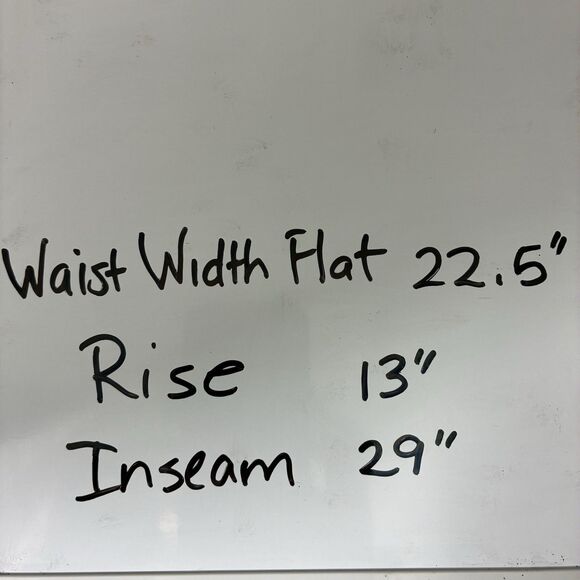 Waist Width Flat 22.5"
Rise 13"
Inseam 29"